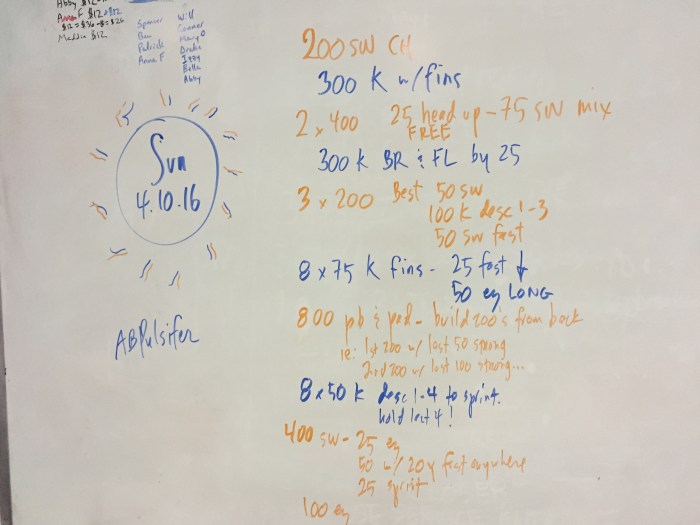 Abby $12
Anna F $12 + $12
$12 = $36 - $ = $26
Maddie $12
Spencer
Ben
Patrick
Anna F
Will
Connor
Mary
Drake
Izzy
Bella
Abby
Sun
4.10.16
ABPulsifer
200 SW CH
300 K w/ fins
2 x 400 25 head up - 75 SW mix
FREE
300 K BR & FL by 25
3 x 200 Best 50 SW
100 K desc 1-3
50 SW fast
8 x 75 K fins - 25 fast ↓
50 ez LONG
800 pb & pad - build 200's from back
ie: 1st 200 w/ last 50 strong
2nd 200 w/ last 100 strong...
8 x 50 K desc 1-4 to sprint.
hold last 4!
400 SW - 25 ez
50 w/ 20y fast anywhere
25 sprint
100 ez